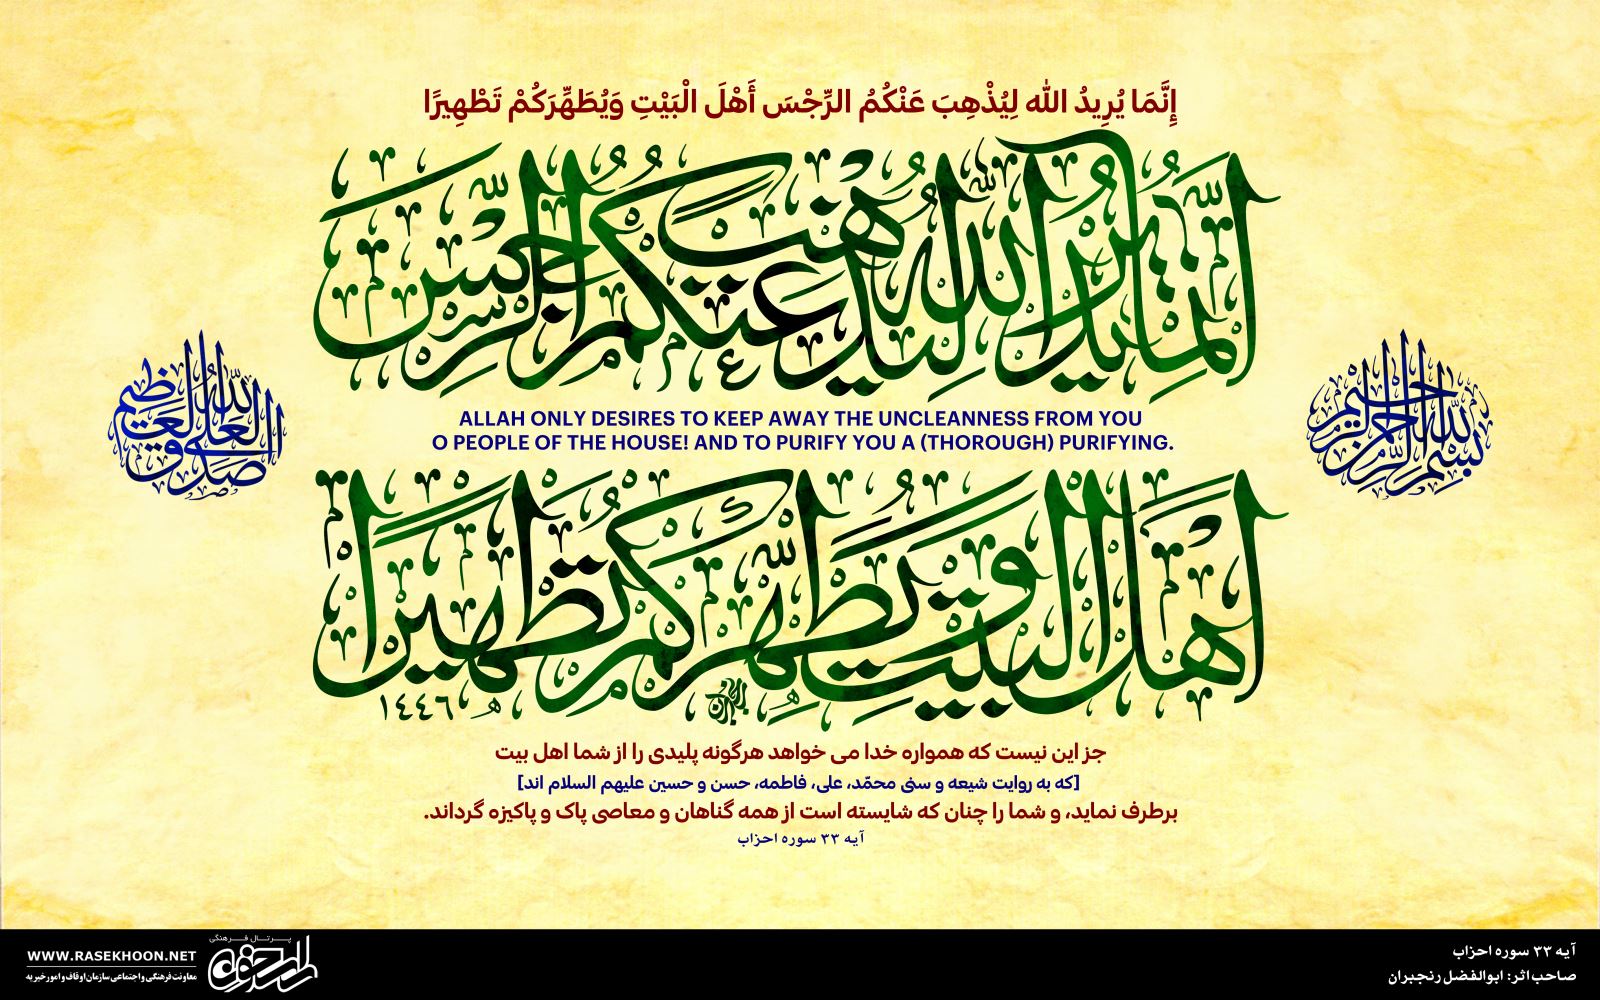 إِنَّمَا يُرِيدُ الله لِيُذْهِبَ عَنْكُمُ الرِّجْسَ أَهْلَ الْبَيْتِ وَيُطَهِّرَكُمْ تَطْهِيرًا
انما یرید الله لیذهب عنکم الرجس
بسم الله الرحمن الرحیم
صدق الله العلی العظیم
ALLAH ONLY DESIRES TO KEEP AWAY THE UNCLEANNESS FROM YOU
O PEOPLE OF THE HOUSE! AND TO PURIFY YOU A (THOROUGH) PURIFYING.
اهل البیت و یطهرکم تطهیرا
١٤٤٦
جز این نیست که همواره خدا می خواهد هرگونه پلیدی را از شما اهل بیت
[که به روایت شیعه و سنی محمّد، علی، فاطمه، حسن و حسین علیهم السلام اند]
برطرف نماید، و شما را چنان که شایسته است از همه گناهان و معاصی پاک و پاکیزه گرداند.
آیه ۳۳ سوره احزاب
آیه ۳۳ سوره احزاب
صاحب اثر: ابوالفضل رنجبران
پرتال فرهنگی
راسخون
WWW.RASEKHOON.NET
معاونت فرهنگی و اجتماعی سازمان اوقاف و امور خیریه